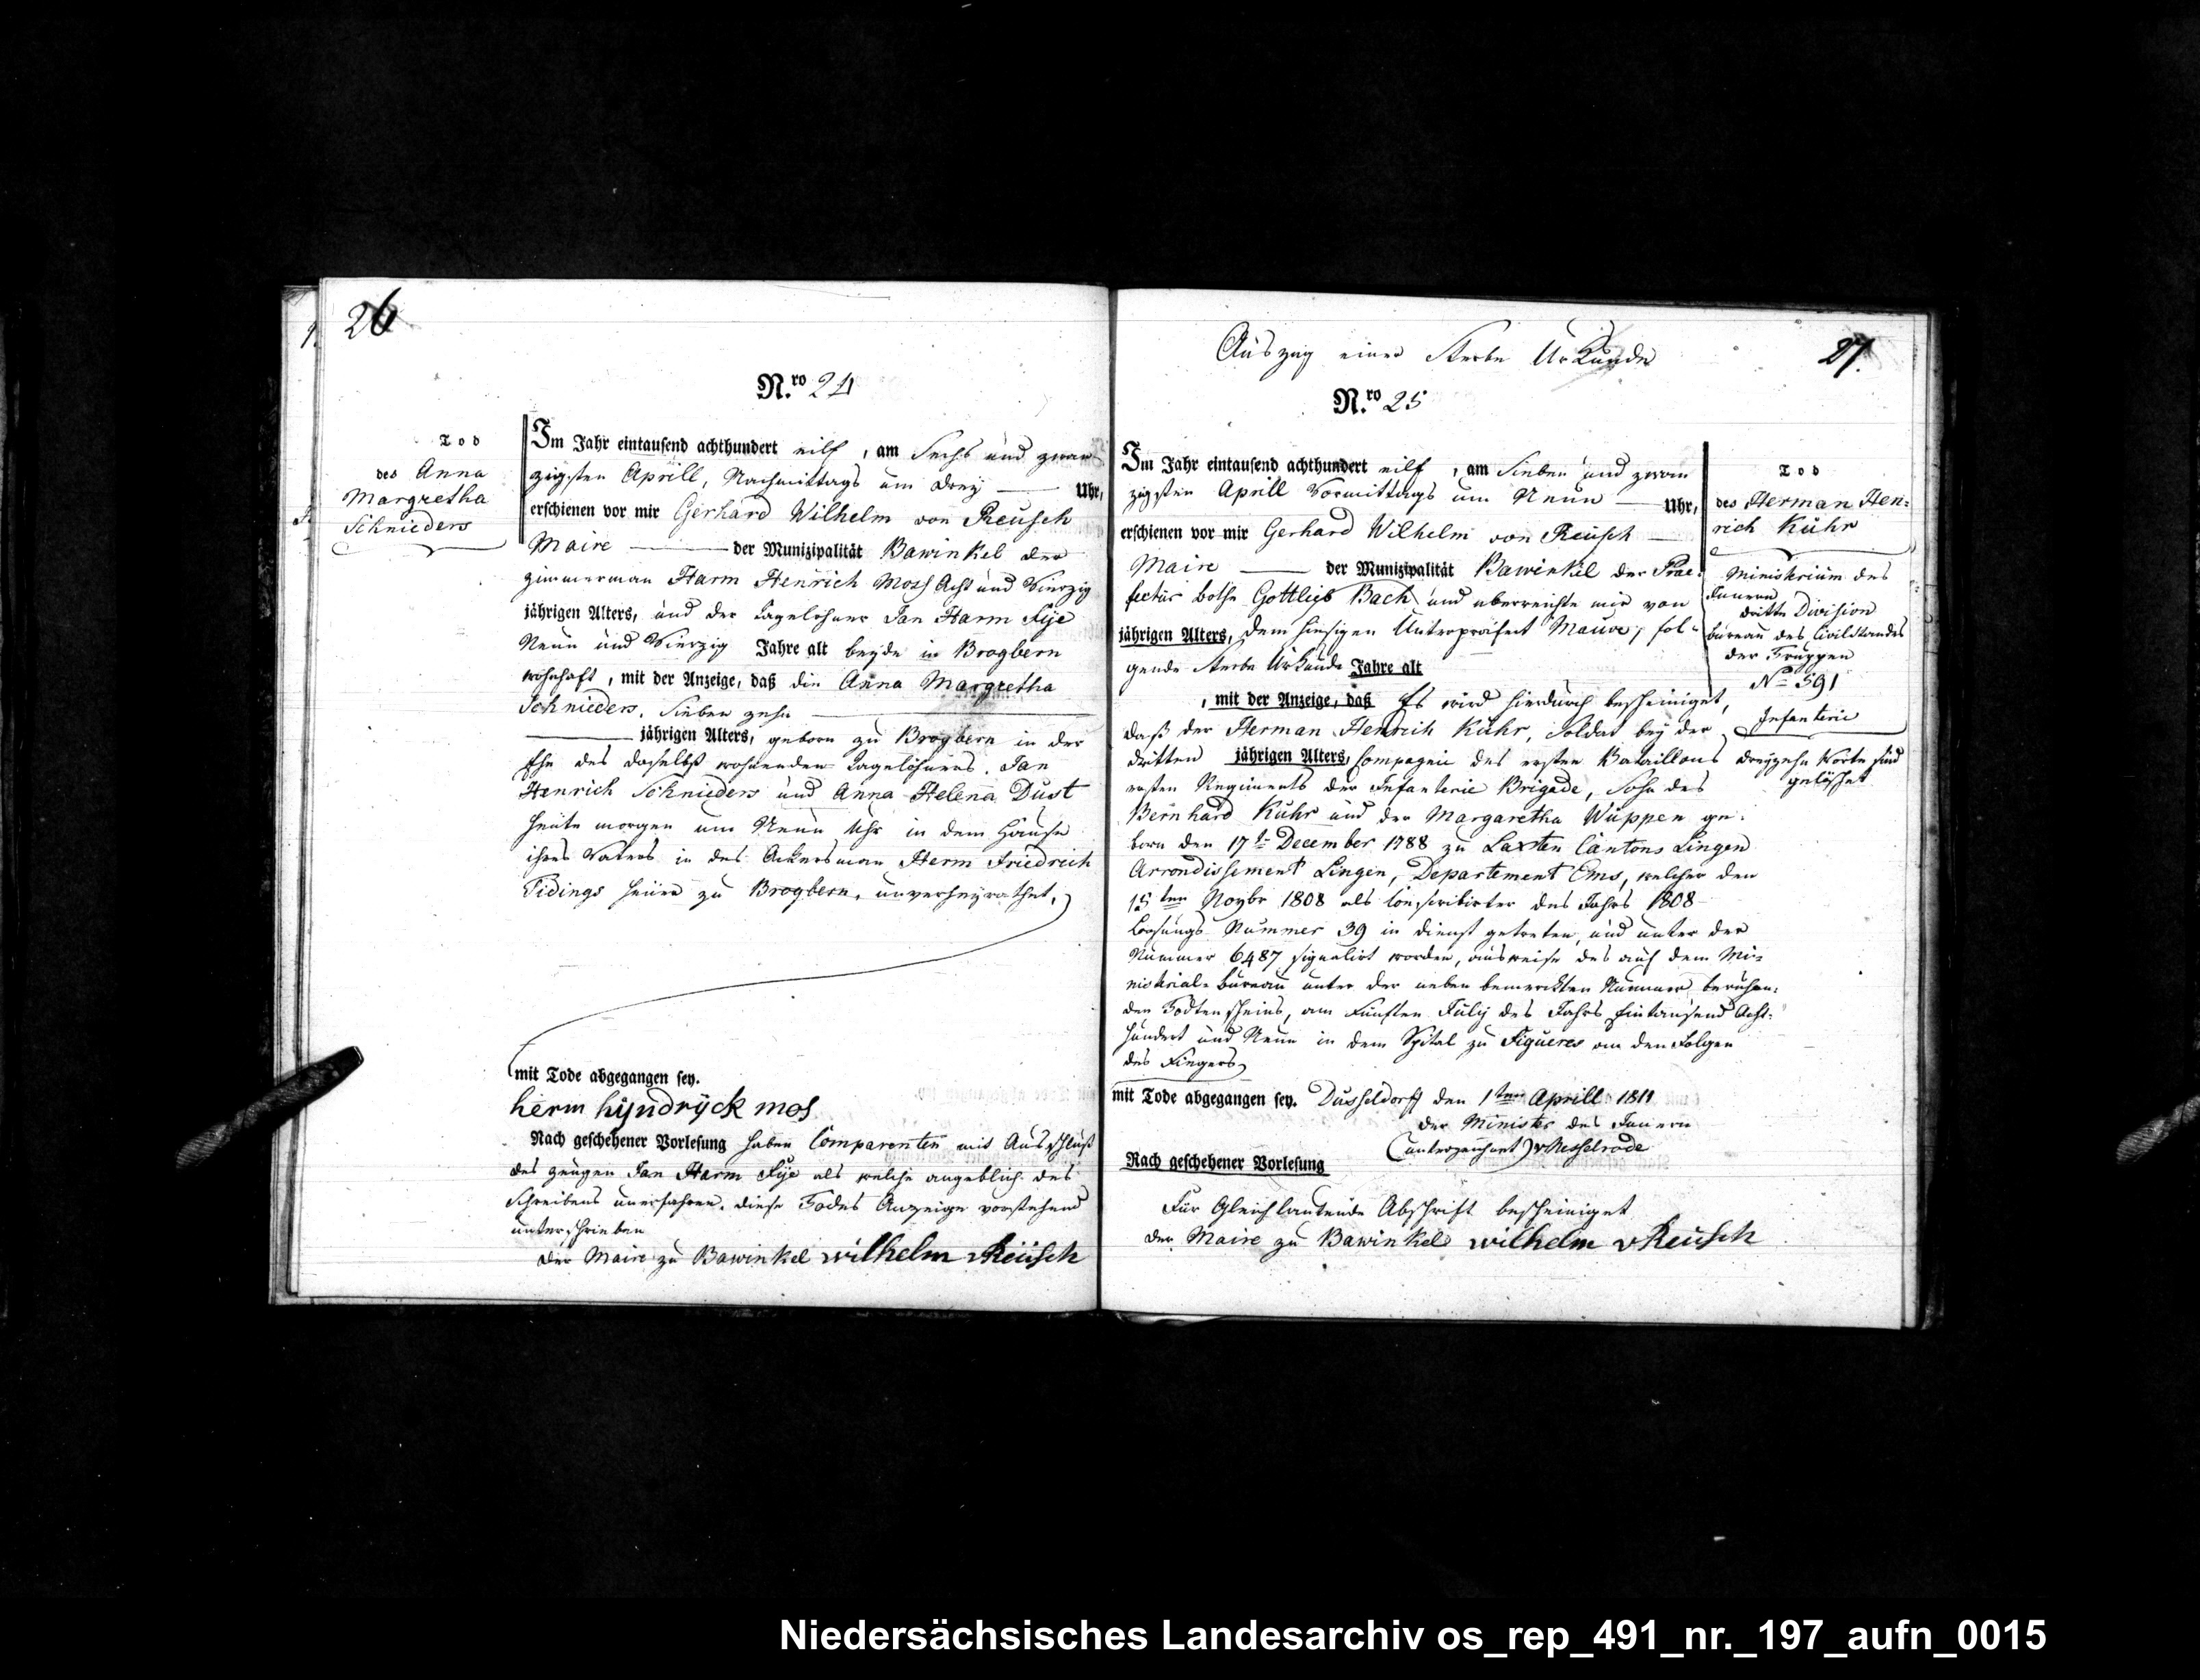 26
N.ro 24
Tod
des Anna
Margretha
Schnieders
Im Jahr eintausend achthundert eilf, am Sechs und zwan
zigsten Aprill, Nachmittags um drey Uhr,
erschienen vor mir Gerhard Wilhelm von Reusch
Maire der Munizipalität Bawinkel der
zimmerman Harm Henrich Moss Acht und Vierzig
jährigen Alters, und der Tagelöhner Jan Harm Fije
Neun und Vierzig Jahre alt beyde in Brogbern
wohnhaft, mit der Anzeige, daß die Anna Margretha
Schnieders, Sieben zehn
jährigen Alters, geboren zu Brogbern in der
Ehe des daselbst wohnenden Tagelöhners Jan
Henrich Schnieders und Anna Helena Dust
heute morgen um Neun Uhr in dem Hause
ihres Vaters in des Ackersman Herm Friedrich
Tidings heuer zu Brogbern, unverheyrathet,
mit Tode abgegangen sey.
herm hijndrijck mos
Nach geschehener Vorlesung haben Comparenten mit Ausschluß
des zeugen Jan Harm Fije als welche angeblich des
Schreibens unerfahren, diese Todes Anzeige vorstehend
unterschrieben
Der Maire zu Bawinkel wilhelm vReusch
27.
Auszug einer Sterbe Urkunde
N.ro 25
Im Jahr eintausend achthundert eilf, am Sieben und zwan
zigsten Aprill Vormittags um Neun Uhr,
erschienen vor mir Gerhard Wilhelm von Reusch
Maire der Munizipalität Bawinkel der Prae-
fectur bothe Gottlieb Bach und überreichte mir von
jährigen Alters, dem hiesigen Unterpräfect Mauve, fol-
gende Sterbe Urkunde Jahre alt
, mit der Anzeige, daß Es wird hierdurch bescheiniget,
daß der Herman Henrich Kühr, Soldat bey der
dritten jährigen Alters, Compagnie des ersten Bataillons
ersten Regiments der Infanterie Brigade, Sohn des
Bernhard Kühr und der Margaretha Wüppen ge-
boren den 17t December 1788 zu Laxten Cantons Lingen
Arrondissement Lingen, Departement Ems, welcher den
15ten Novbr 1808 als Conscribirter des Jahrs 1808
Losungs Nummer 39 in dienst getreten, und unter der
Nummer 6487 signalirt worden, ausweise des auf dem Mi-
nisterial-Bureau unter der neben bemerkten Nummer beruhen-
den Todtenscheins, am Fünften July des Jahrs Eintausend Acht-
hundert und Neun in dem Spital zu Figueres an den Folgen
des Fiebers
mit Tode abgegangen sey. Dusseldorff den 1ten Aprill 1811
Der Minister des Innern
(unterzeichnet) vNesselrode
Nach geschehener Vorlesung
Für Gleichlautende Abschrift bescheiniget
der Maire zu Bawinkel wilhelm vReusch
Tod
des Herman Hen-
rich Kühr
Ministerium des
Innern
dritte Division
Bureau des Civilstandes
der Truppen
No 591
Infanterie
dreyzehn Worte sind
gelöscht
Niedersächsisches Landesarchiv os_rep_491_nr._197_aufn_0015